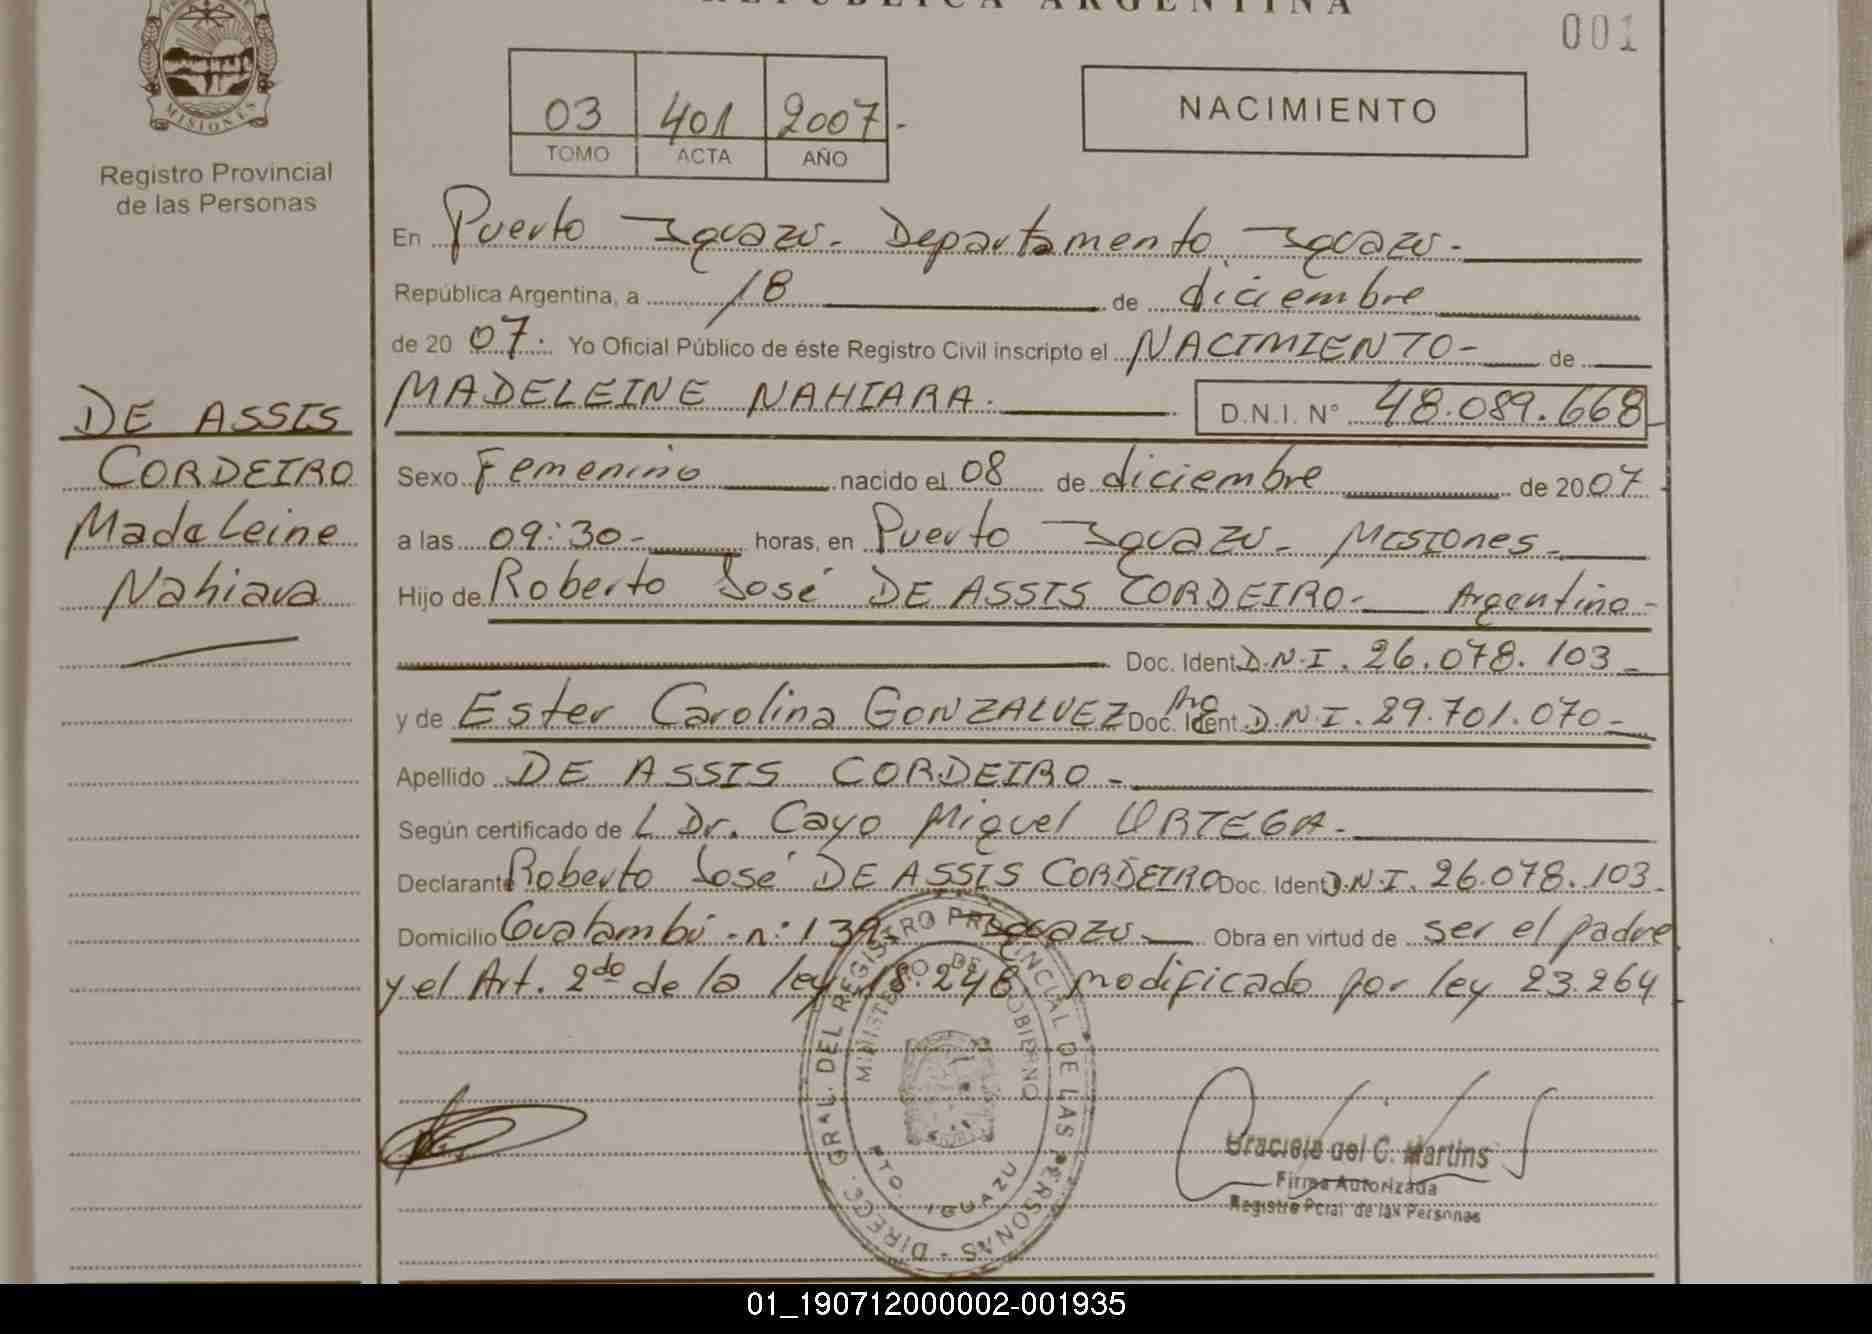 REPUBLICA ARGENTINA
001
MISIONES
Registro Provincial
de las Personas
03 401 2007.-
TOMO ACTA AÑO
NACIMIENTO
En Puerto Iguazú. Departamento Iguazú.-
República Argentina, a 18 de diciembre
de 2007. Yo Oficial Público de éste Registro Civil inscripto el NACIMIENTO- de
MADELEINE NAHIARA. D.N.I. N° 48.089.668
DE ASSIS
CORDEIRO
Madeleine
Nahiara
Sexo Femenino nacido el 08 de diciembre de 2007
a las 09:30- horas, en Puerto Iguazú- Misiones-
Hijo de Roberto José DE ASSIS CORDEIRO- Argentino-
Doc. Ident. D.N.I. 26.078.103-
y de Ester Carolina GONZALVEZ Arg Doc. Ident. D.N.I. 29.701.070-
Apellido DE ASSIS CORDEIRO-
Según certificado de L Dr. Cayo Miguel ORTEGA-
Declarante Roberto José DE ASSIS CORDEIRO Doc. Ident. D.N.I. 26.078.103-
Domicilio Guatambú-n: 139- Iguazú- Obra en virtud de ser el padre
y el Art. 2do de la ley 18.248 modificado por ley 23.264
DIRECC. GRAL. DEL REGISTRO PROVINCIAL DE LAS PERSONAS -
MINISTERIO DE GOBIERNO
PTO. IGUAZU
Graciela del C. Martins
Firma Autorizada
Registro Pcial de las Personas
01_190712000002-001935